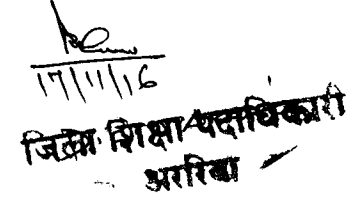 17/11/16
जिला शिक्षा पदाधिकारी
अररिया